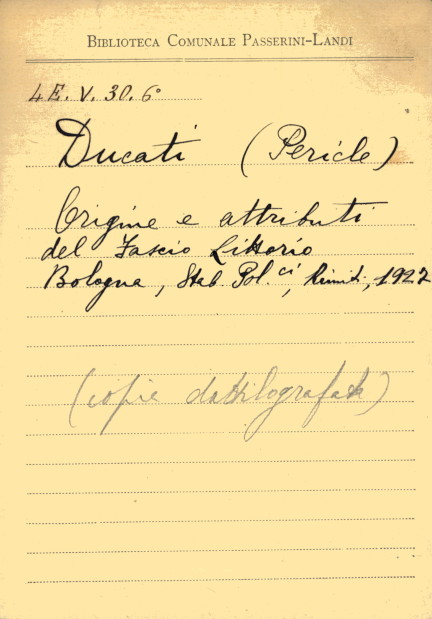 BIBLIOTECA COMUNALE PASSERINI-LANDI
4E. V. 30. 6°
Ducati (Pericle)
Origine e attributi
del Fascio Littorio
Bologna, Stab. Pol.ci Riuniti, 1927
(copia dattilografata)